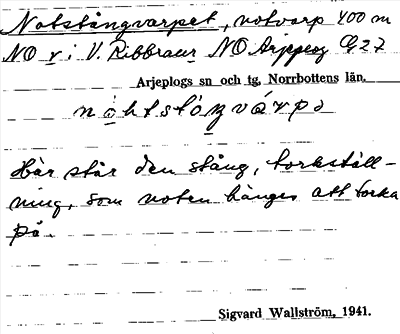 Notstångvarpet, notvarp 400 m
NO v i V. Ribbraur NO Arjeplog G27
Arjeplogs sn och tg, Norrbottens län.
nòhtstòŋvárpə
Här står den stång, torkställ-
ning, som noten hänges att torka
på.
Sigvard Wallström, 1941.